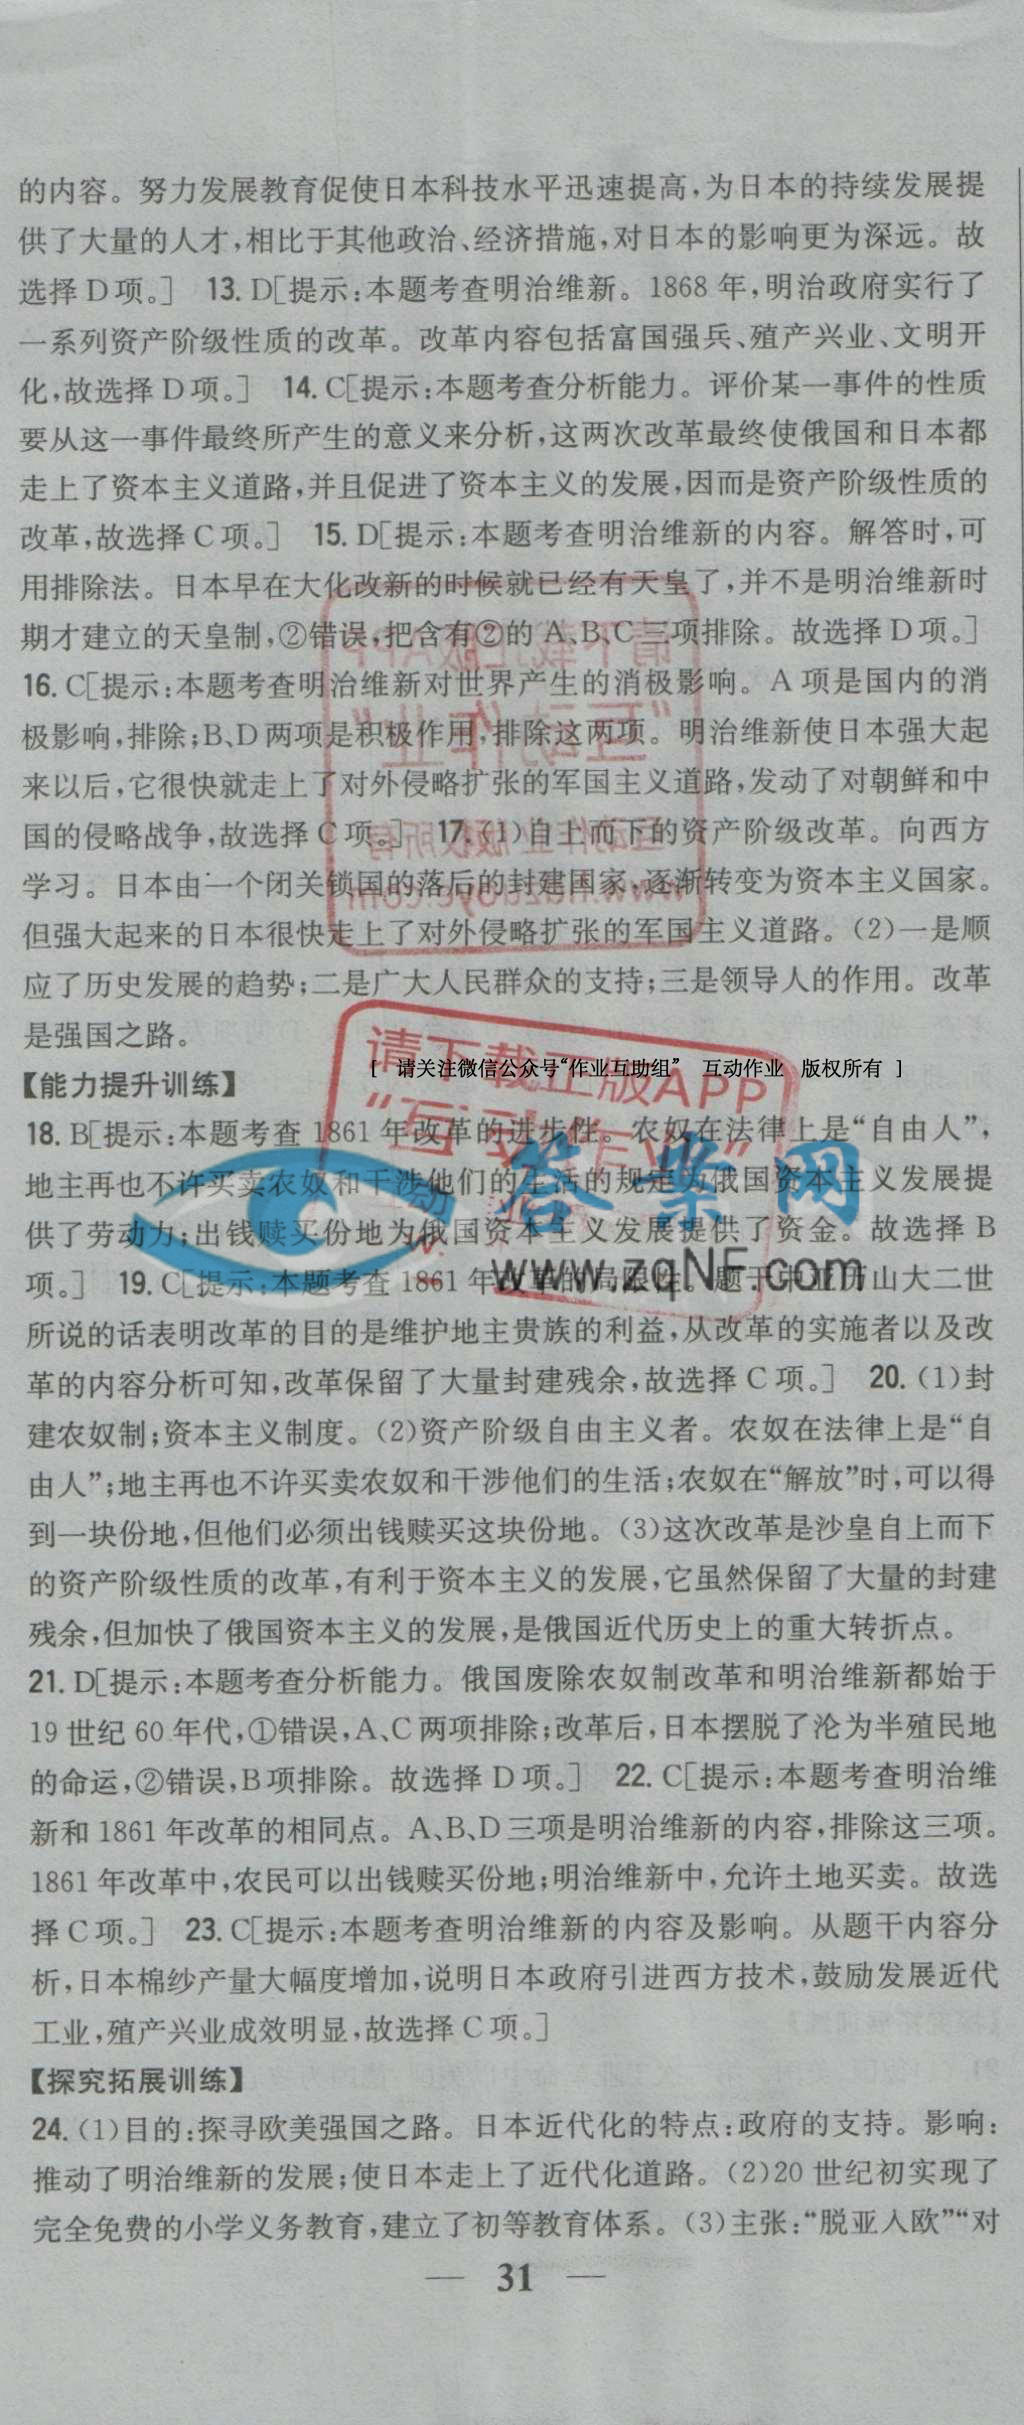 的内容。努力发展教育促使日本科技水平迅速提高,为日本的持续发展提
供了大量的人才,相比于其他政治、经济措施,对日本的影响更为深远。故
选择D项。] 13. D[提示:本题考查明治维新。1868年,明治政府实行了
一系列资产阶级性质的改革。改革内容包括富国强兵、殖产兴业、文明开
化,故选择D项。] 14. C[提示:本题考查分析能力。评价某一事件的性质
要从这一事件最终所产生的意义来分析,这两次改革最终使俄国和日本都
走上了资本主义道路,并且促进了资本主义的发展,因而是资产阶级性质的
改革,故选择C项。] 15. D[提示:本题考查明治维新的内容。解答时,可
用排除法。日本早在大化改新的时候就已经有天皇了,并不是明治维新时
期才建立的天皇制,②错误,把含有②的A、B、C三项排除。故选择D项。]
16. C[提示:本题考查明治维新对世界产生的消极影响。A项是国内的消
极影响,排除;B、D两项是积极作用,排除这两项。明治维新使日本强大起
来以后,它很快就走上了对外侵略扩张的军国主义道路,发动了对朝鲜和中
国的侵略战争,故选择C项。] 17. (1)自上而下的资产阶级改革。向西方
学习。日本由一个闭关锁国的落后的封建国家,逐渐转变为资本主义国家。
但强大起来的日本很快走上了对外侵略扩张的军国主义道路。(2)一是顺
应了历史发展的趋势;二是广大人民群众的支持;三是领导人的作用。改革
是强国之路。
[ 请关注微信公众号“作业互助组” 互动作业 版权所有 ]
请下载正版APP
“互动作业”
【能力提升训练】
18. B[提示:本题考查1861年改革的进步性。农奴在法律上是“自由人”,
地主再也不许买卖农奴和干涉他们的生活的规定为俄国资本主义发展提
供了劳动力;出钱赎买份地为俄国资本主义发展提供了资金。故选择B
答案网
www.zqNF.com
项。] 19. C[提示:本题考查1861年改革的局限性。题干中亚历山大二世
所说的话表明改革的目的是维护地主贵族的利益,从改革的实施者以及改
革的内容分析可知,改革保留了大量封建残余,故选择C项。] 20. (1)封
建农奴制;资本主义制度。(2)资产阶级自由主义者。农奴在法律上是“自
由人”;地主再也不许买卖农奴和干涉他们的生活;农奴在“解放”时,可以得
到一块份地,但他们必须出钱赎买这块份地。(3)这次改革是沙皇自上而下
的资产阶级性质的改革,有利于资本主义的发展,它虽然保留了大量的封建
残余,但加快了俄国资本主义的发展,是俄国近代历史上的重大转折点。
21. D[提示:本题考查分析能力。俄国废除农奴制改革和明治维新都始于
19世纪60年代,①错误,A、C两项排除;改革后,日本摆脱了沦为半殖民地
的命运,②错误,B项排除。故选择D项。] 22. C[提示:本题考查明治维
新和1861年改革的相同点。A、B、D三项是明治维新的内容,排除这三项。
1861年改革中,农民可以出钱赎买份地;明治维新中,允许土地买卖。故选
择C项。] 23. C[提示:本题考查明治维新的内容及影响。从题干内容分
析,日本棉纱产量大幅度增加,说明日本政府引进西方技术,鼓励发展近代
工业,殖产兴业成效明显,故选择C项。]
【探究拓展训练】
24. (1)目的:探寻欧美强国之路。日本近代化的特点:政府的支持。影响:
推动了明治维新的发展;使日本走上了近代化道路。(2)20世纪初实现了
完全免费的小学义务教育,建立了初等教育体系。(3)主张:“脱亚入欧”“对
— 31 —